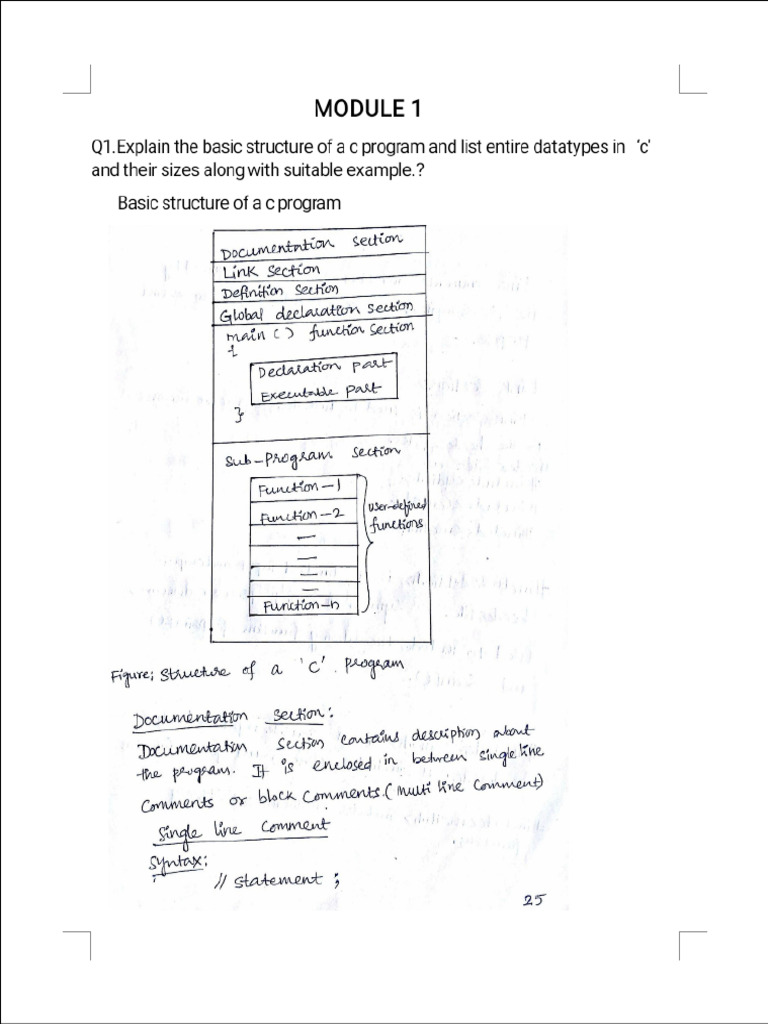 MODULE 1
Q1.Explain the basic structure of a c program and list entire datatypes in 'c'
and their sizes along with suitable example.?
Basic structure of a c program
Documentation section
Link section
Definition section
Global declaration section
main () function section
{
Declaration part
Executable part
}
Sub-program section
Function-1
Function-2
user-defined
functions
Function-n
Figure; Structure of a 'C' program
Documentation section:
Documentation section contains description about
the program. It is enclosed in between single line
comments or block comments.(multi line comment)
Single line comment
Syntax:
// statement ;
25